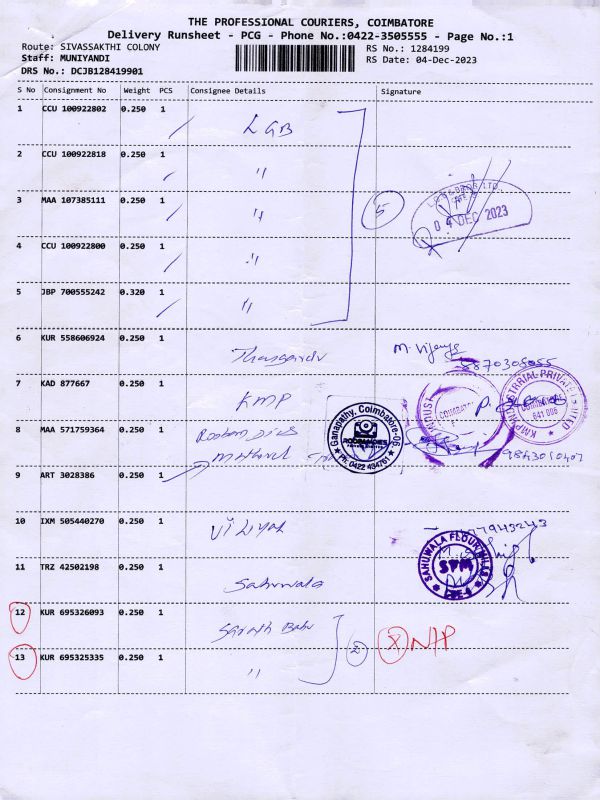 THE PROFESSIONAL COURIERS, COIMBATORE
Delivery Runsheet - PCG - Phone No.:0422-3505555 - Page No.:1
Route: SIVASSAKTHI COLONY RS No.: 1284199
Staff: MUNIYANDI RS Date: 04-Dec-2023
DRS No.: DCJB128419901
S No Consignment No Weight PCS Consignee Details Signature
1 CCU 100922802 0.250 1 LGB
2 CCU 100922818 0.250 1 "
3 MAA 107385111 0.250 1 " 5 04 DEC 2023
4 CCU 100922800 0.250 1 "
5 JBP 700555242 0.320 1 "
6 KUR 558606924 0.250 1 M. Vijaya
7 KAD 877667 0.250 1 KMP COIMBATORE 641 006
8 MAA 571759364 0.250 1 Ganapathy, Coimbatore-06 Ph: 0422 434761
9 ART 3028386 0.250 1
10 IXM 505440270 0.250 1
11 TRZ 42502198 0.250 1 Sahuwala SAHUWALA FLOUR MILLS SFM CBE-6
12 KUR 695326093 0.250 1 Sarath Babu 2 X N/P
13 KUR 695325335 0.250 1 "